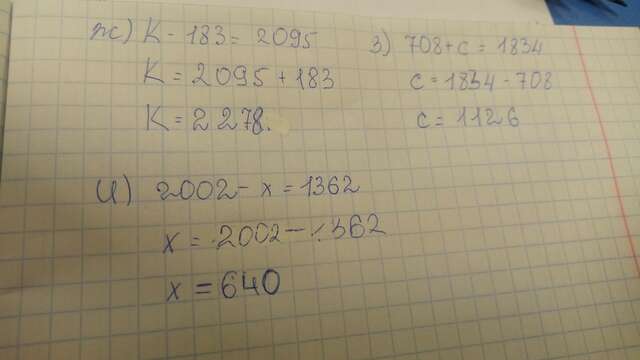 ж) К - 183 = 2095
К = 2095 + 183
К = 2278.
з) 708 + с = 1834
с = 1834 - 708
с = 1126
и) 2002 - х = 1362
х = 2002 - 1362
х = 640